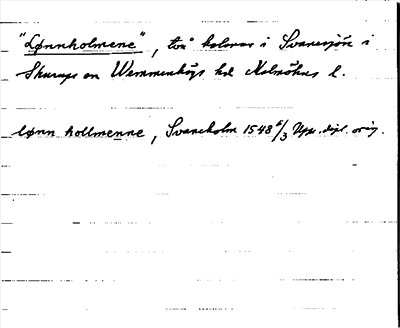 "Lønnholmene", två holmar i Svanesjön i
Skurups sn Wemmenhögs hd Malmöhus l.
lønn hollmenne, Svaneholm 1548 6/3 Upps. dipl. orig.